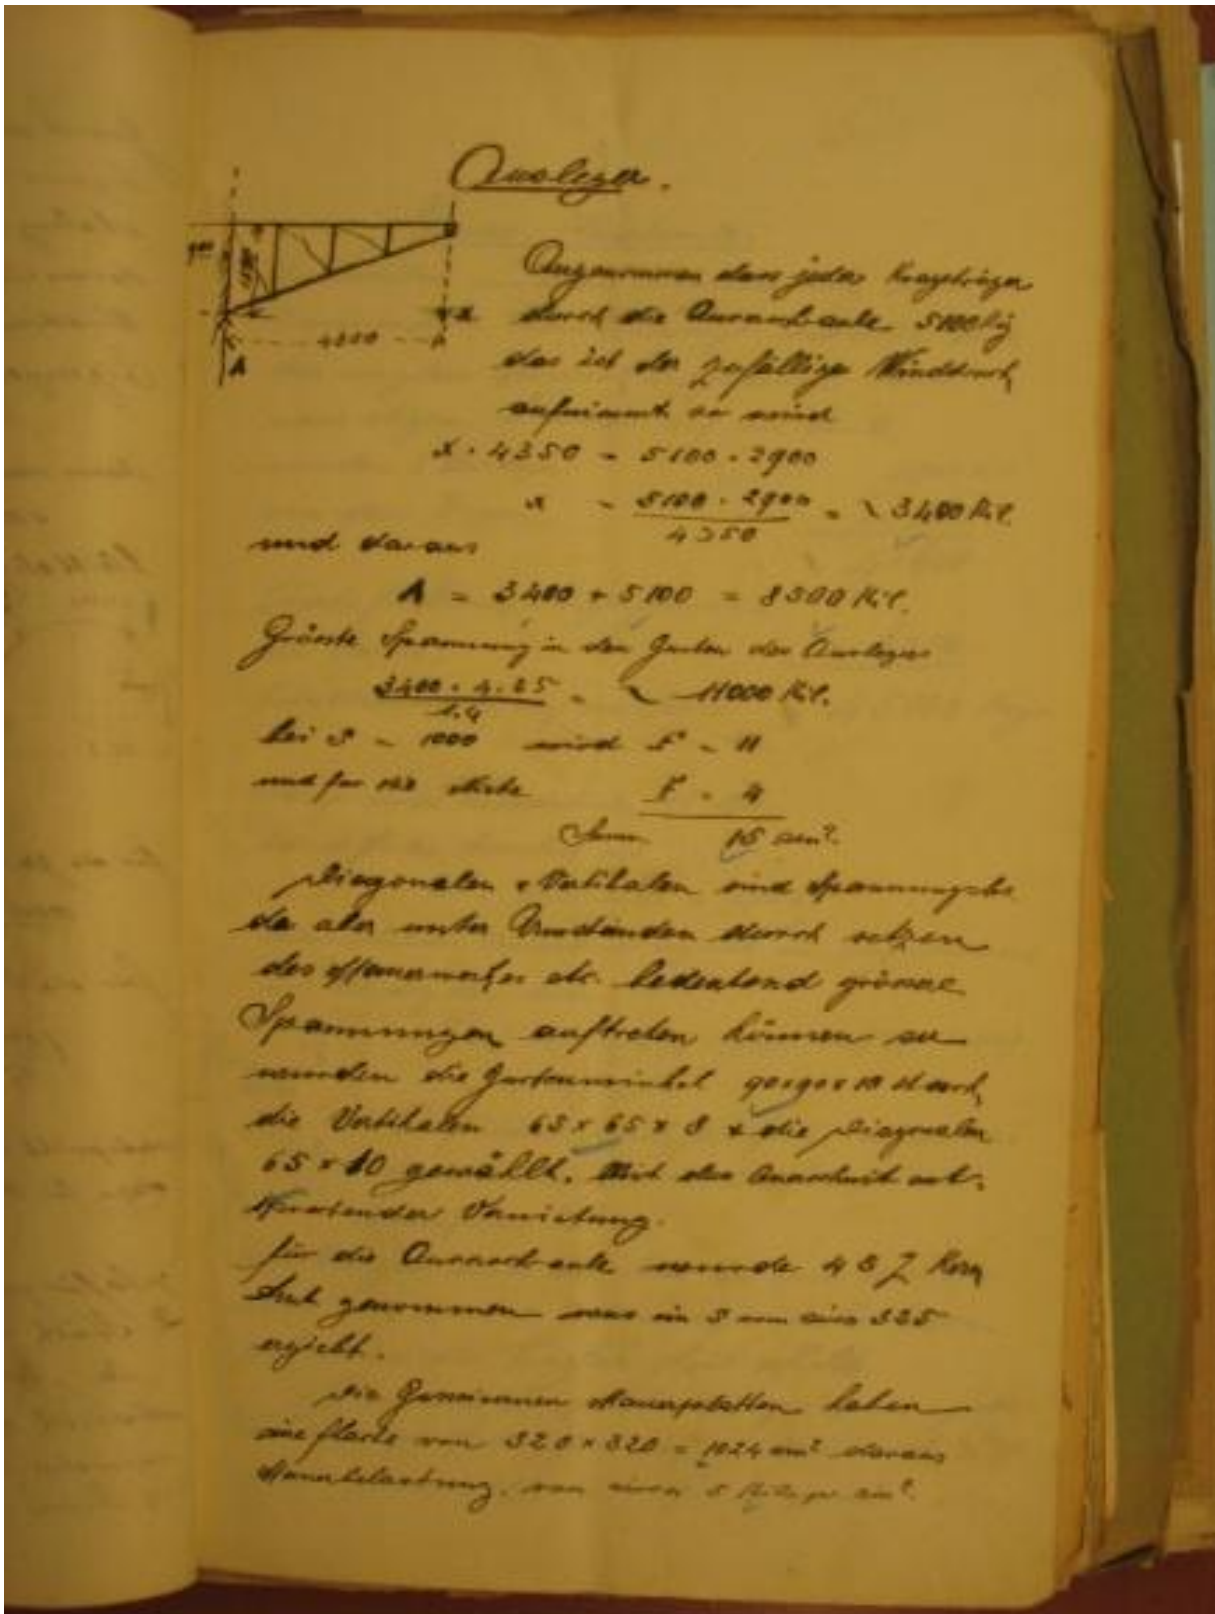 Ausleger.
900
4350
A
Angenommen dass jeder Kragträger
durch die 5100 kg
das ist der zufällige Winddruck
aufnimmt so wird
x · 4350 = 5100 · 2900
x = 5100 · 2900 / 4350 = ~ 3400 Kil.
und daraus
A = 3400 + 5100 = 8500 Kil.
Grösste Spannung in den Gurten des Auslegers
3400 · 4.25 / 1.4 = ~ 11000 Kil.
bei S = 1000 wird F = 11
und für die Niete F = 4
Sum 15 cm².
Diagonalen + Vertikalen sind Spannungslos
da aber unter Umständen durch setzen
des Mauerwerkes etc. bedeutend grössere
Spannungen auftreten können so
wurden die Gurtenwinkel 90 x 90 x 13 stark,
die Vertikalen 65 x 65 x 8 & die Diagonalen
65 x 10 gewählt. Mit dem Querschnitt ent-
sprechender Vernietung.
für die wurde
genommen was ein
ergiebt.
Die Mauerplatten haben
eine fläche von 320 x 320 = 1024 cm² daraus
Mauerbelastung, von